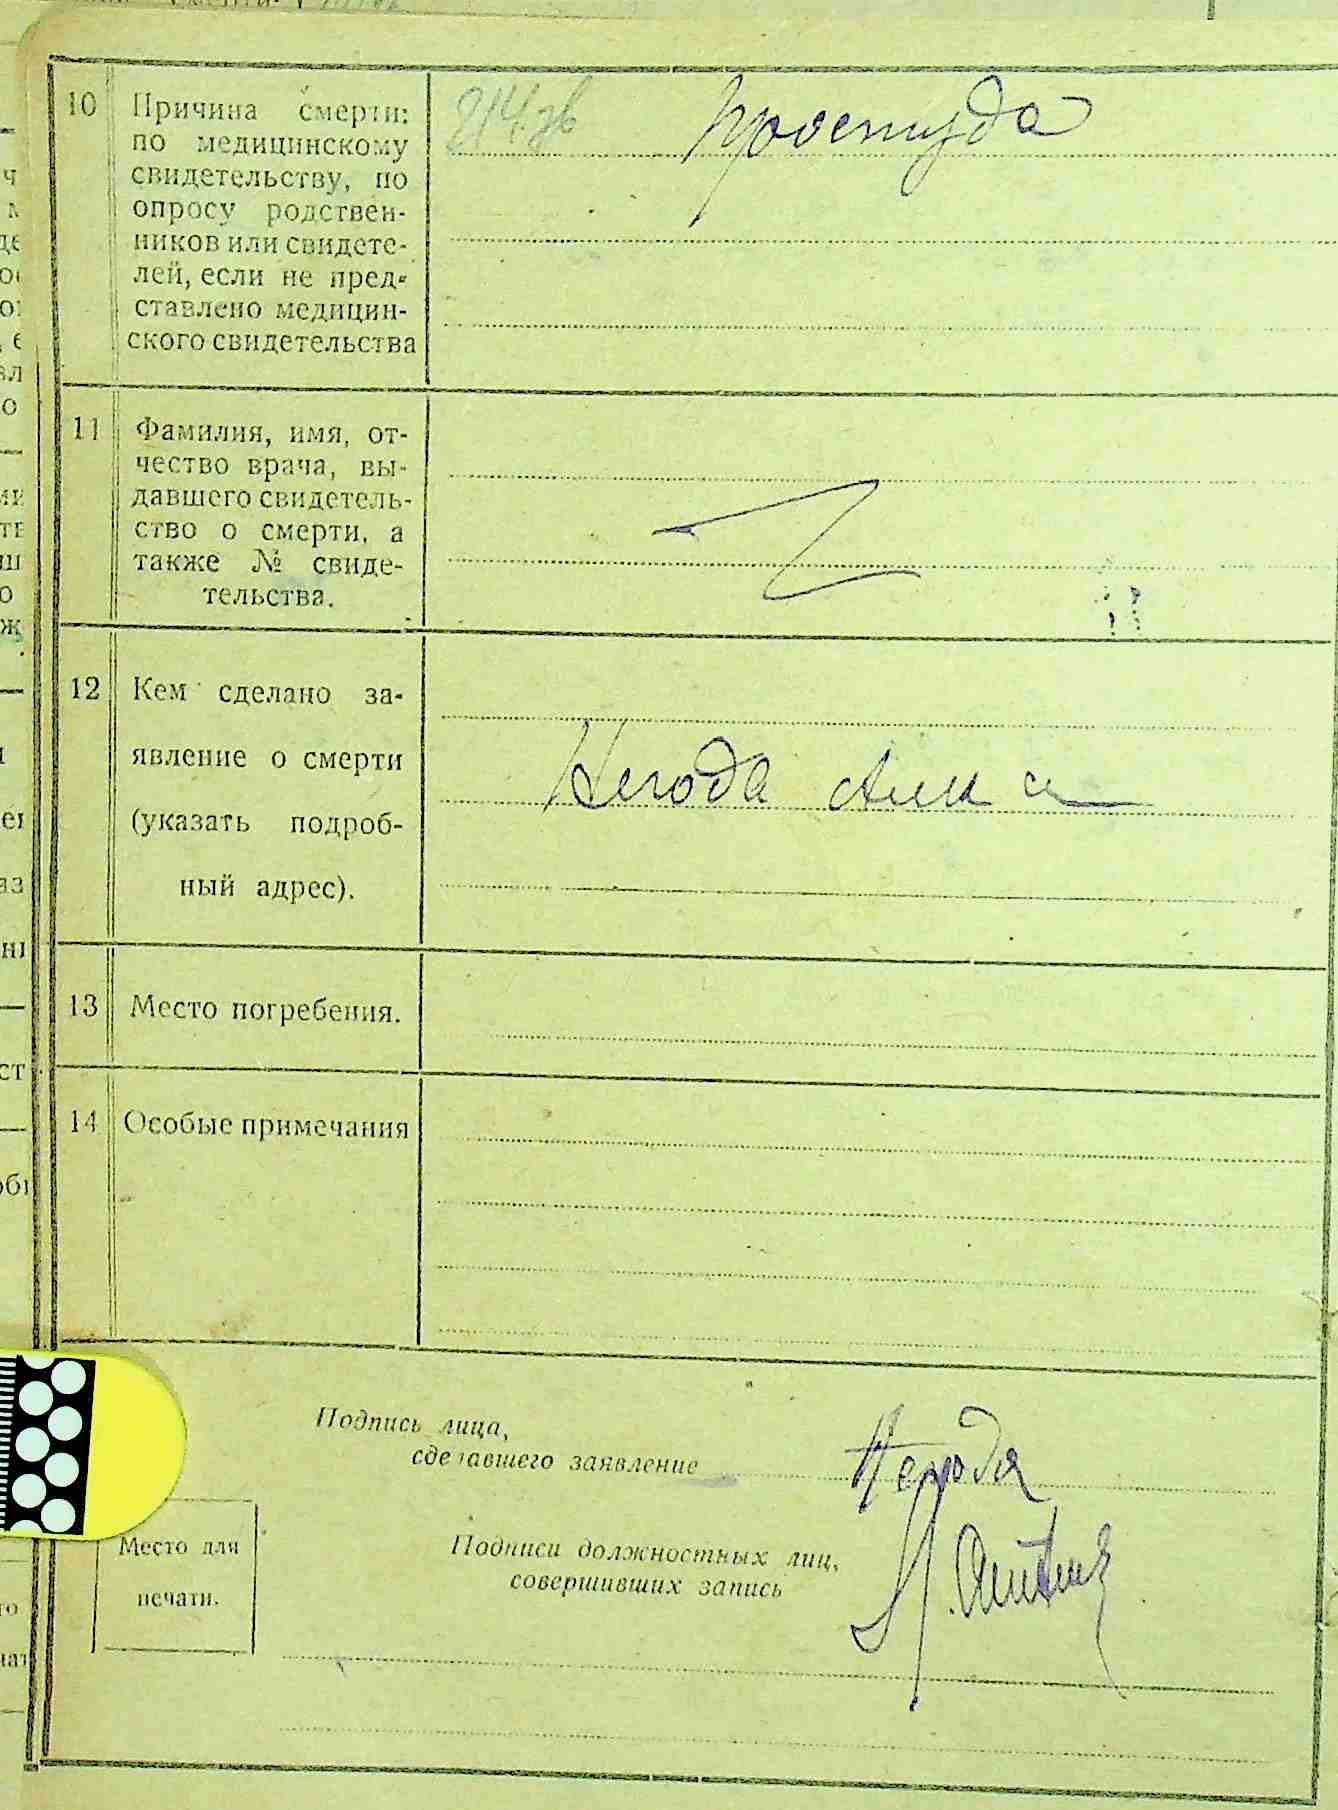 10 Причина смерти:
по медицинскому
свидетельству, по
опросу родствен-
ников или свидете-
лей, если не пред-
ставлено медицин-
ского свидетельства
простуда
11 Фамилия, имя, от-
чество врача, вы-
давшего свидетель-
ство о смерти, а
также № свиде-
тельства.
12 Кем сделано за-
явление о смерти
(указать подроб-
ный адрес).
Негода
13 Место погребения.
14 Особые примечания
Подпись лица,
сделавшего заявление
Негода
Место для
печати.
Подписи должностных лиц,
совершивших запись